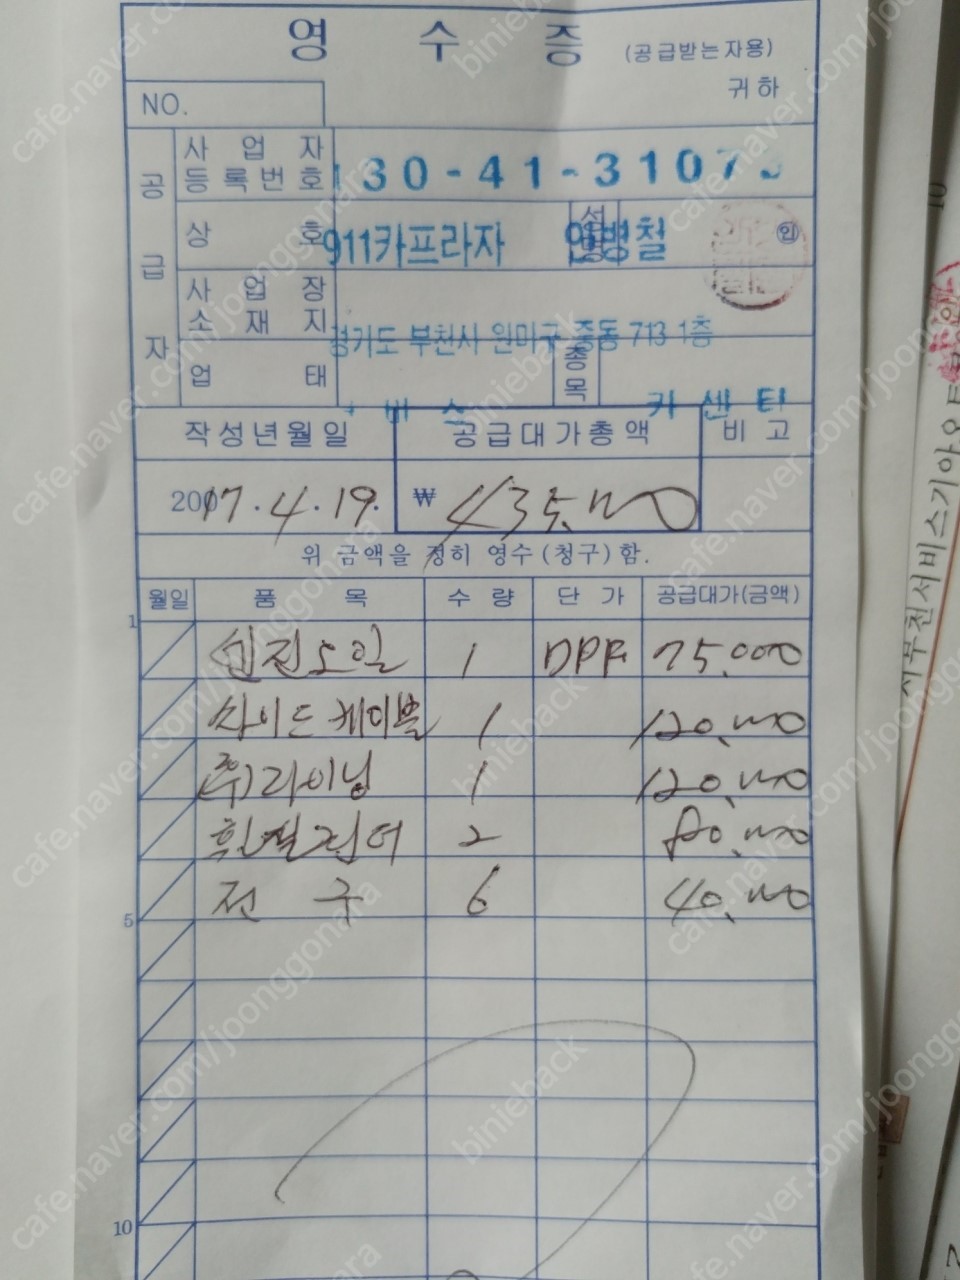 영 수 증 (공급받는자용)
귀하
NO.
공급자
사업자등록번호 130-41-3107
상호 911카프라자 성명 병철 인
사업장소재지 경기도 부천시 원미구 중동 713 1층
업태 비스 종목 카센터
작성년월일 공급대가총액 비고
2017.4.19. ₩ 435,000
위 금액을 정히 영수(청구)함.
월일 품목 수량 단가 공급대가(금액)
1 엔진오일 1 DPF 75,000
사이드케이블 1 120,000
(후)라이닝 1 120,000
휠실린더 2 80,000
5 전구 6 40,000
10
서부천서비스기아오토
cafe.naver.com/joonggonara
binieback